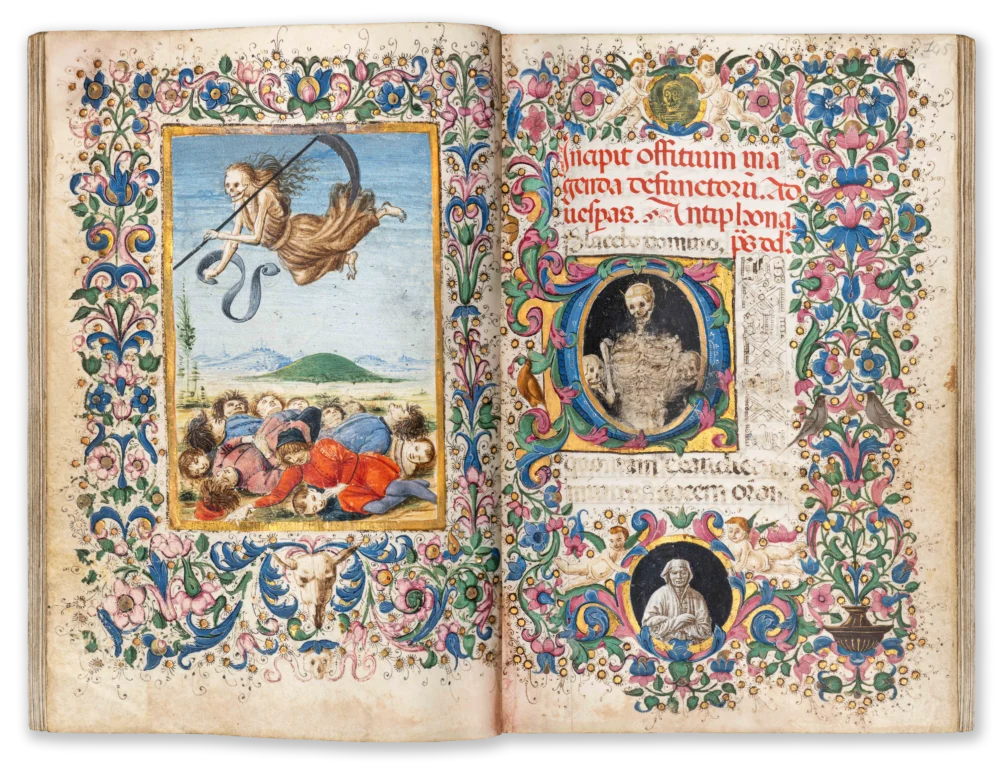 Incipit offitium in a
genda defunctorũ. Ad
uesp̃as. Antiphona
Placebo domino. p̃s
quoniam exaudiet
minus uocem